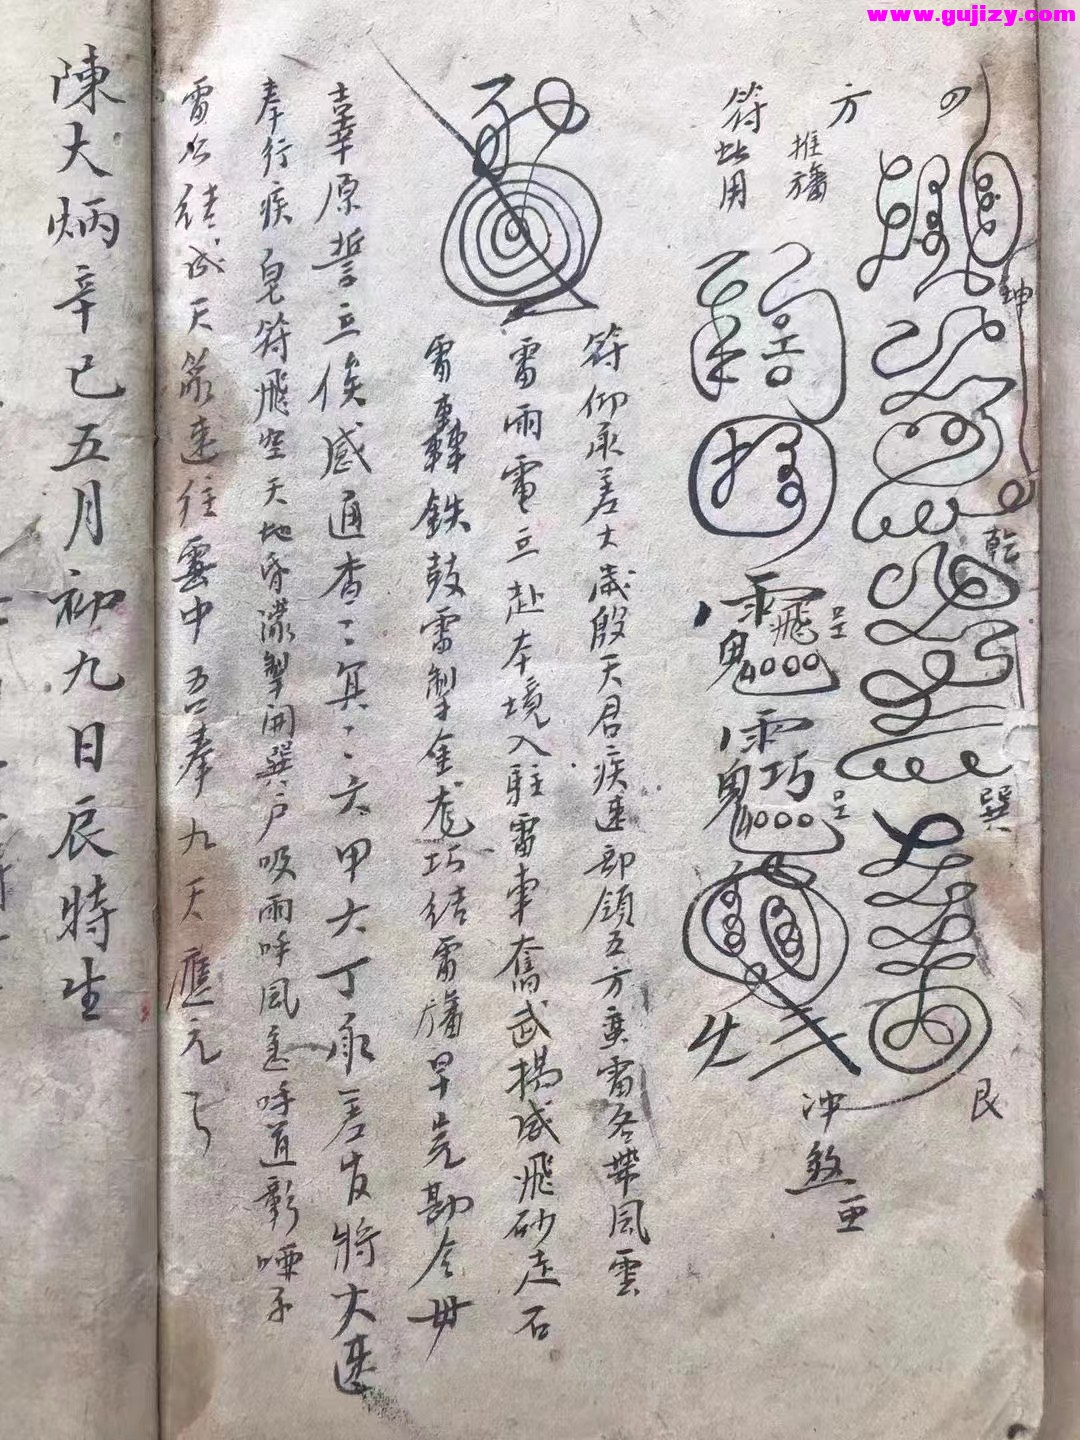 www.gujizy.com
四
方
推旛
符此用
坤
乾
巽
艮
呈
呈
冲煞
符仰承差太歲殷天君疾速部領五方蛮雷各帶風雲
雷雨電立赴本境入駐雷車奮武揚威飛砂走石
雷轟鉄鼓雷掣金 巧結雷旛早 勘合毋
辜原誓立俟感通杳〻冥〻六甲六丁承差友將火速
奉行疾 符飛空天地昏濛掣開巽户吸雨呼風 呼道彰
雷公結成天篆速往雲中吾奉九天應元
陳大炳辛巳五月初九日辰時生